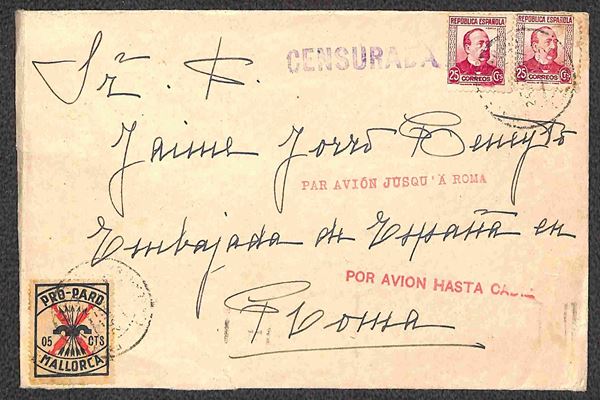 CENSURADA
REPÚBLICA ESPAÑOLA
25 Cs
CORREOS
REPÚBLICA ESPAÑOLA
25 Cs
CORREOS
Sr. D.
Jaime Jorro Beneyto
PAR AVIÓN JUSQU'À ROMA
Embajada de España en
POR AVION HASTA
Roma
PRO-PARO
05 CTS
MALLORCA